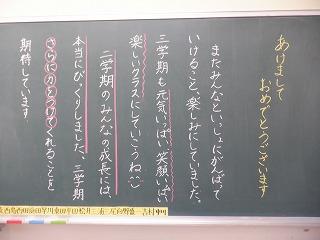 あけまして
おめでとうございます
またみんなといっしょにがんばって
いけること、楽しみにしていました。
三学期も元気いっぱい笑顔いっぱい
楽しいクラスにしていこうね
二学期のみんなの成長には、
本当にびっくりしました。三学期
さらに力をつけてくれることを
期待しています